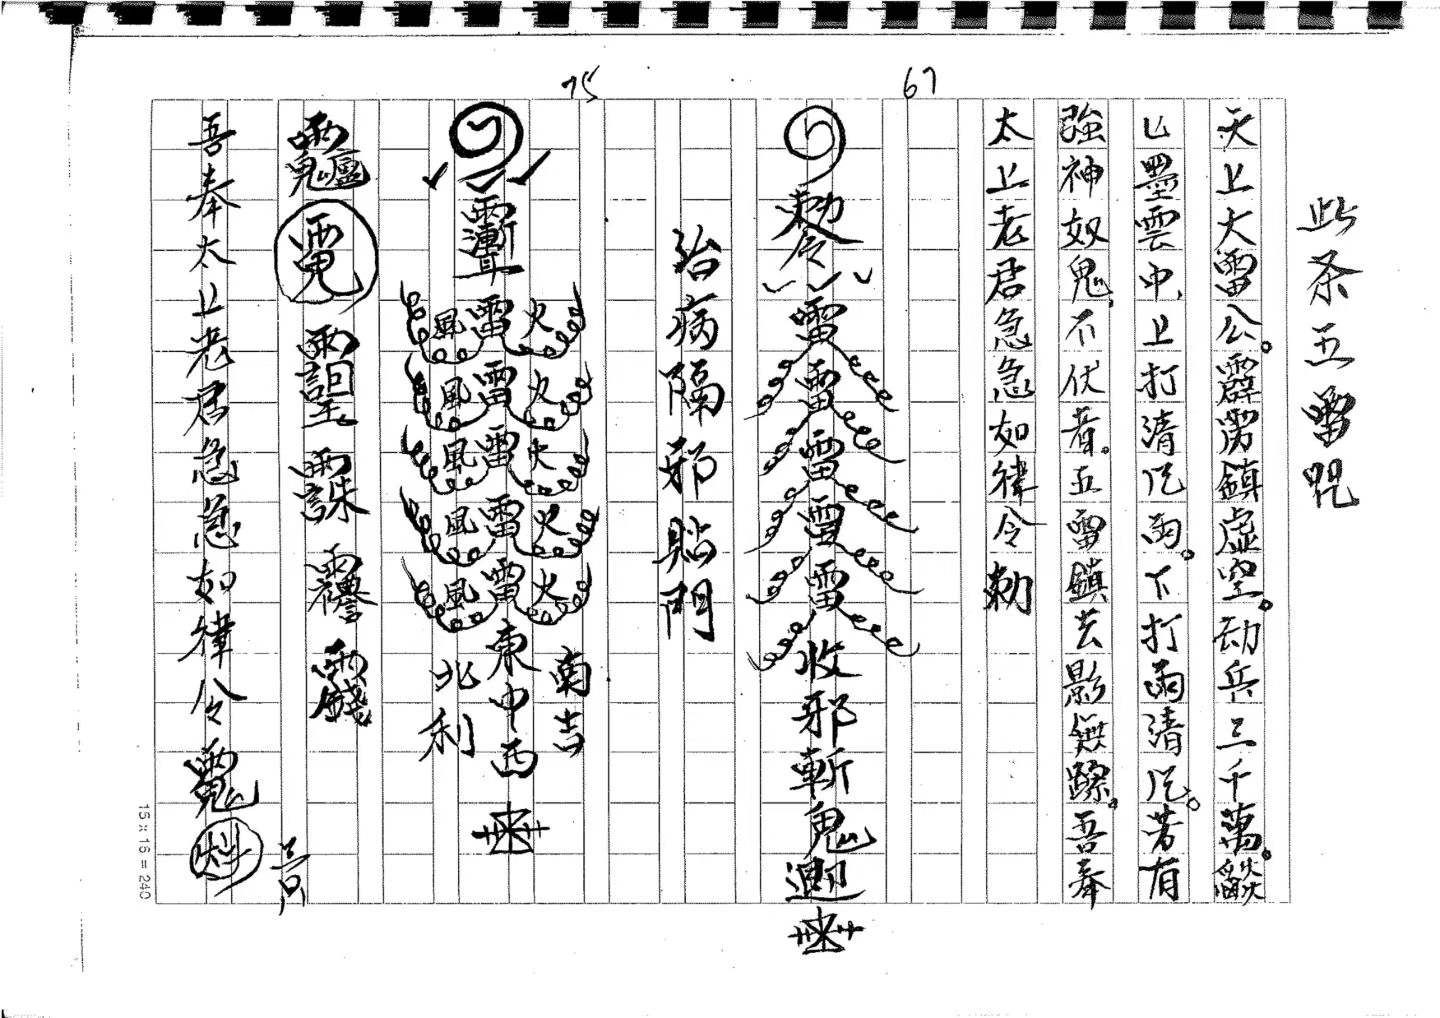 此条五雷咒
天上大雷公。霹雳鎮虛空。劫兵三千萬。
墨雲中,上打清 雨。下打雨清 。若有
強神奴鬼,不伏者。五雷鎮去影無蹤。吾奉
太上老君急急如律令勅
67
勅令
雷雷雷雷雷收邪斬鬼
治病隔邪貼門
75
火火火火火南吉
雷雷雷雷雷東中西
風風風風風北利
吾奉太上老君急急如律令
15×16=240